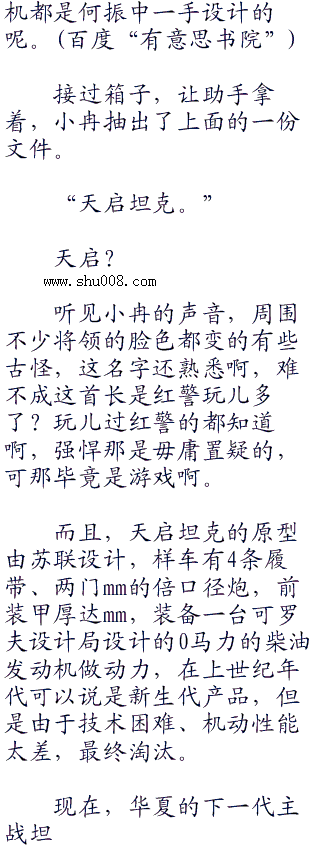 机都是何振中一手设计的
呢。(百度“有意思书院”)
接过箱子，让助手拿
着，小冉抽出了上面的一份
文件。
“天启坦克。”
天启？
www.shu008.com
听见小冉的声音，周围
不少将领的脸色都变的有些
古怪，这名字还熟悉啊，难
不成这首长是红警玩儿多
了？玩儿过红警的都知道
啊，强悍那是毋庸置疑的，
可那毕竟是游戏啊。
而且，天启坦克的原型
由苏联设计，样车有4条履
带、两门mm的倍口径炮，前
装甲厚达mm，装备一台可罗
夫设计局设计的0马力的柴油
发动机做动力，在上世纪年
代可以说是新生代产品，但
是由于技术困难、机动性能
太差，最终淘汰。
现在，华夏的下一代主
战坦